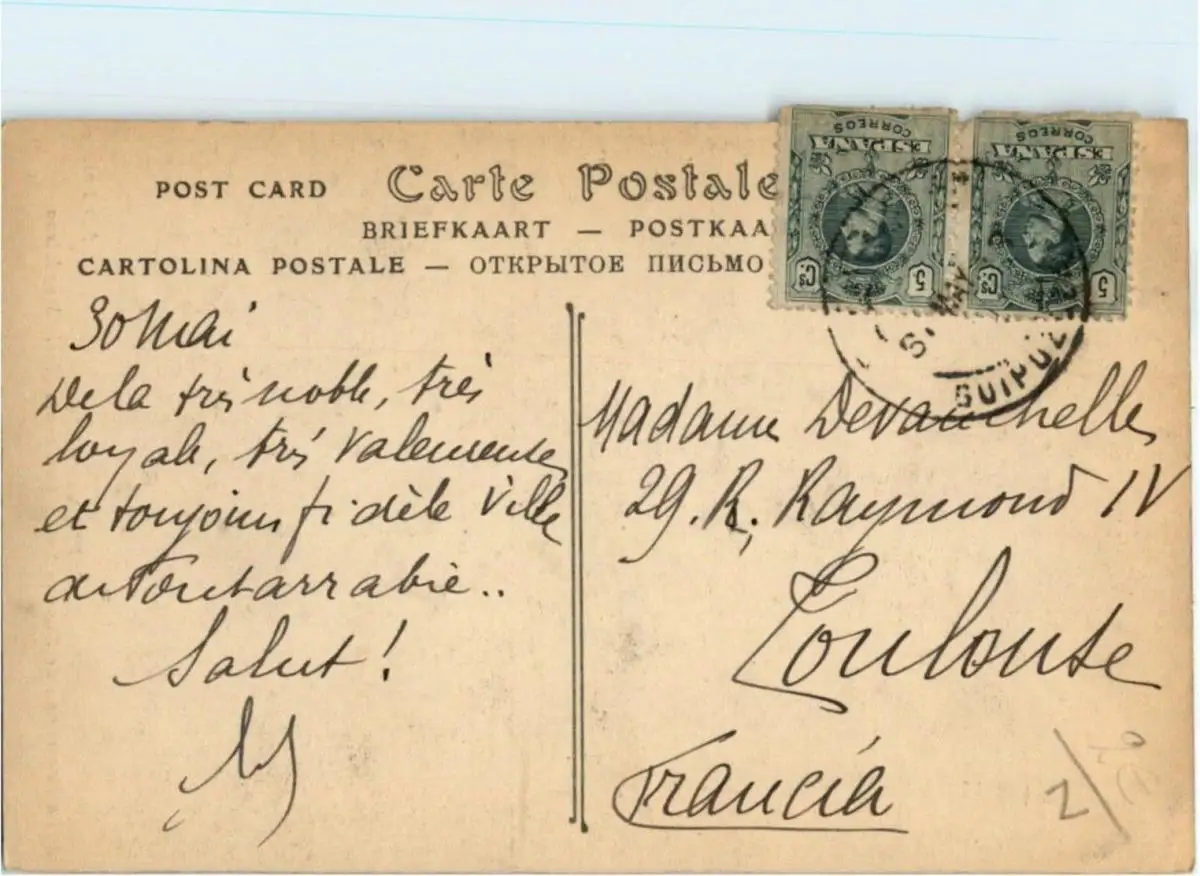 POST CARD Carte Postale
BRIEFKAART — POSTKAA
CARTOLINA POSTALE — ОТКРЫТОЕ ПИСЬМО
CORREOS
ESPAÑA
5 Cs
CORREOS
ESPAÑA
5 Cs
GUIPUZ
30 Mai
De la très noble, très
loyale, très valeureuse
et toujours fidèle Ville
de Fontarrabie..
Salut!
Madame Devauchelle
29. R. Raymond IV
Toulouse
Francia